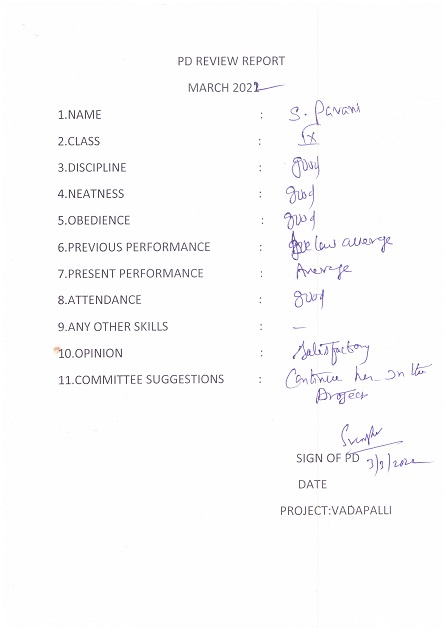 PD REVIEW REPORT
MARCH 2022
1.NAME : S. Pavani
2.CLASS : IX
3.DISCIPLINE : good
4.NEATNESS : good
5.OBEDIENCE : good
6.PREVIOUS PERFORMANCE : Below average
7.PRESENT PERFORMANCE : Average
8.ATTENDANCE : good
9.ANY OTHER SKILLS : —
10.OPINION : Satesfactory
11.COMMITTEE SUGGESTIONS : Continue her in the
Project
SIGN OF PD 3/3/2022
DATE
PROJECT:VADAPALLI